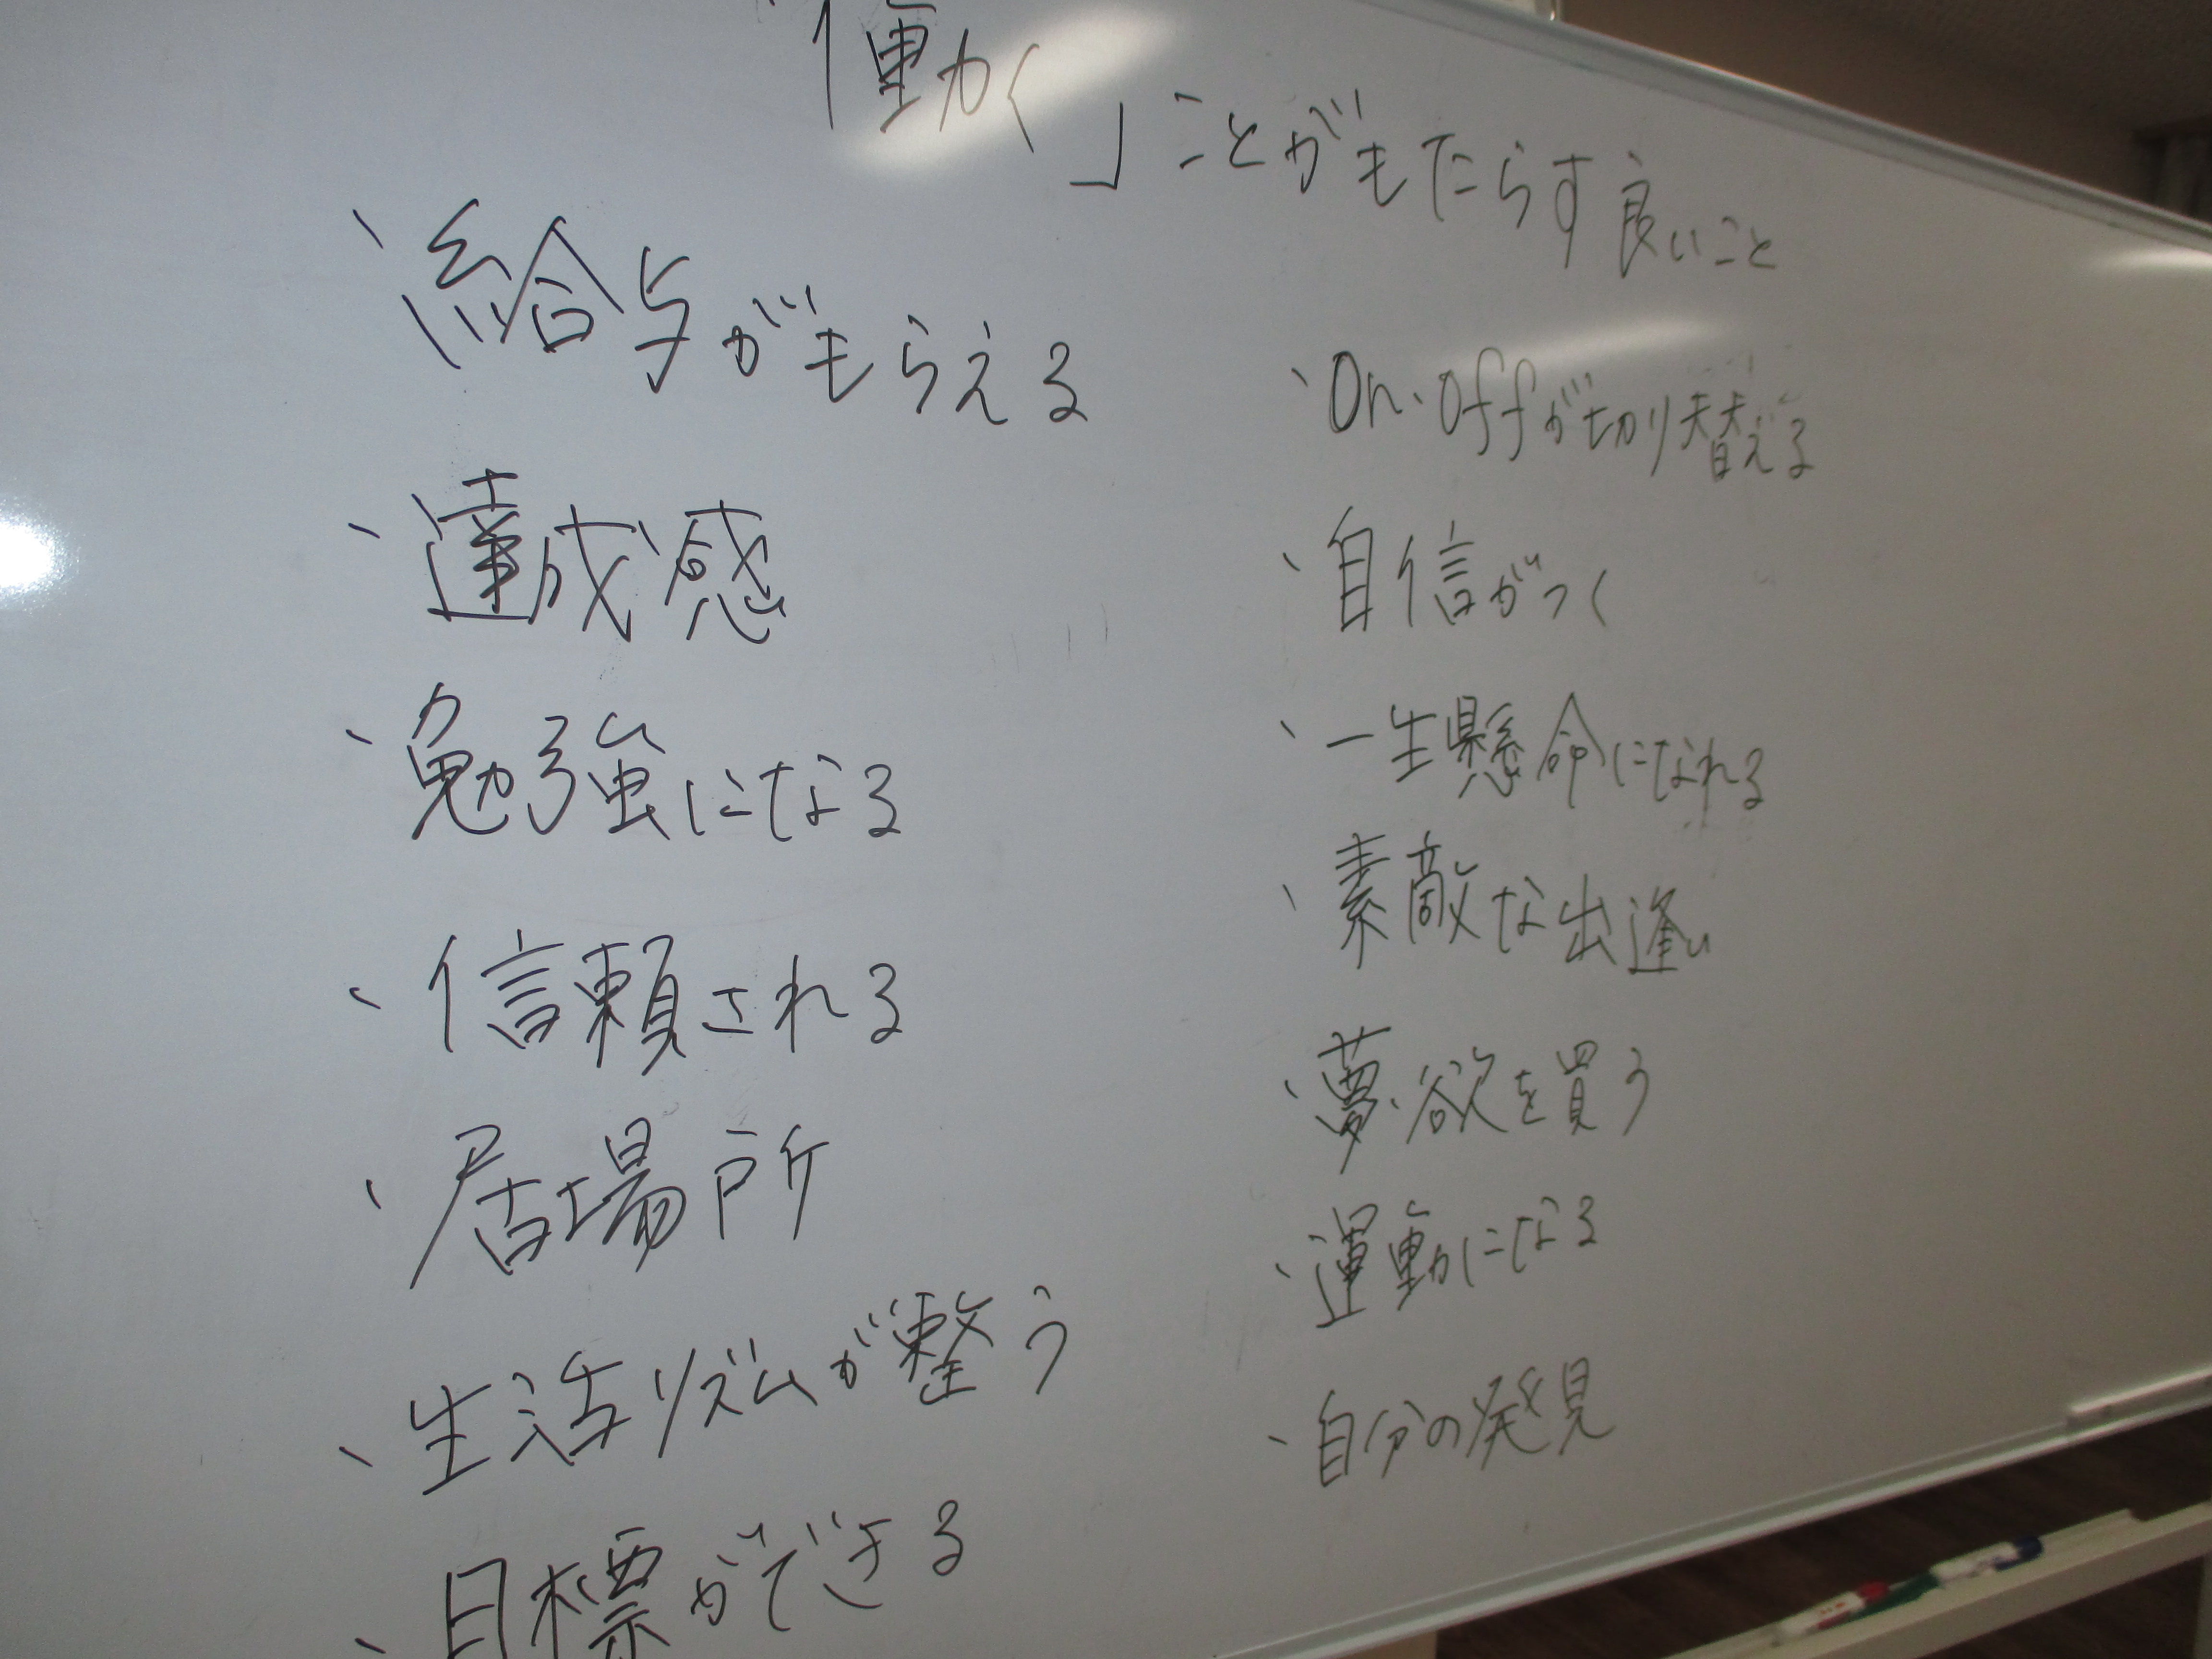 「働く」ことがもたらす良いこと
、給与がもらえる
、達成感
、勉強になる
、信頼される
、居場所
、生活リズムが整う
、目標ができる
、On、Offが切り替える
、自信がつく
、一生懸命になれる
、素敵な出逢い
、夢、欲を買う
、運動になる
、自分の発見